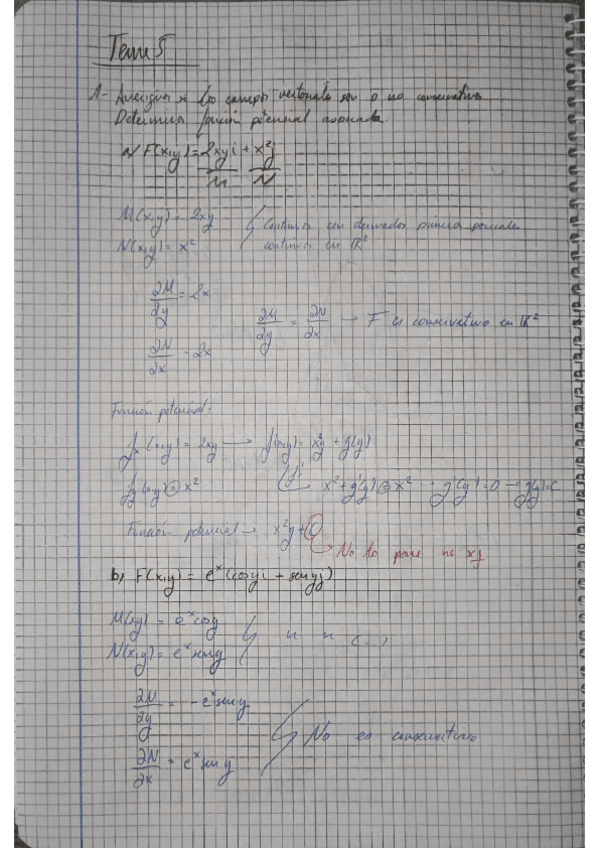 Tema 5
1- Averiguar si los campos vectoriales son o no conservativos.
Determinar función potencial asociada.
a/ F(x,y) = 2xyi + x²j
M N
M(x,y) = 2xy
N(x,y) = x²
Continuas con derivadas primeras parciales
continuas en R²
∂M/∂y = 2x
∂M/∂y = ∂N/∂x → F es conservativo en R²
∂N/∂x = 2x
Función potencial:
fx(x,y) = 2xy → f(x,y) = x²y + g(y)
fy(x,y) = x² x² + g'(y) = x² → g'(y) = 0 → g(y) = C
Función potencial → x²y + C
No lo pone
b) F(x,y) = eˣ(cosyi + senyj)
M(x,y) = eˣcosy
N(x,y) = eˣseny
" " (...)
∂M/∂y = -eˣseny
No es conservativo
∂N/∂x = eˣseny